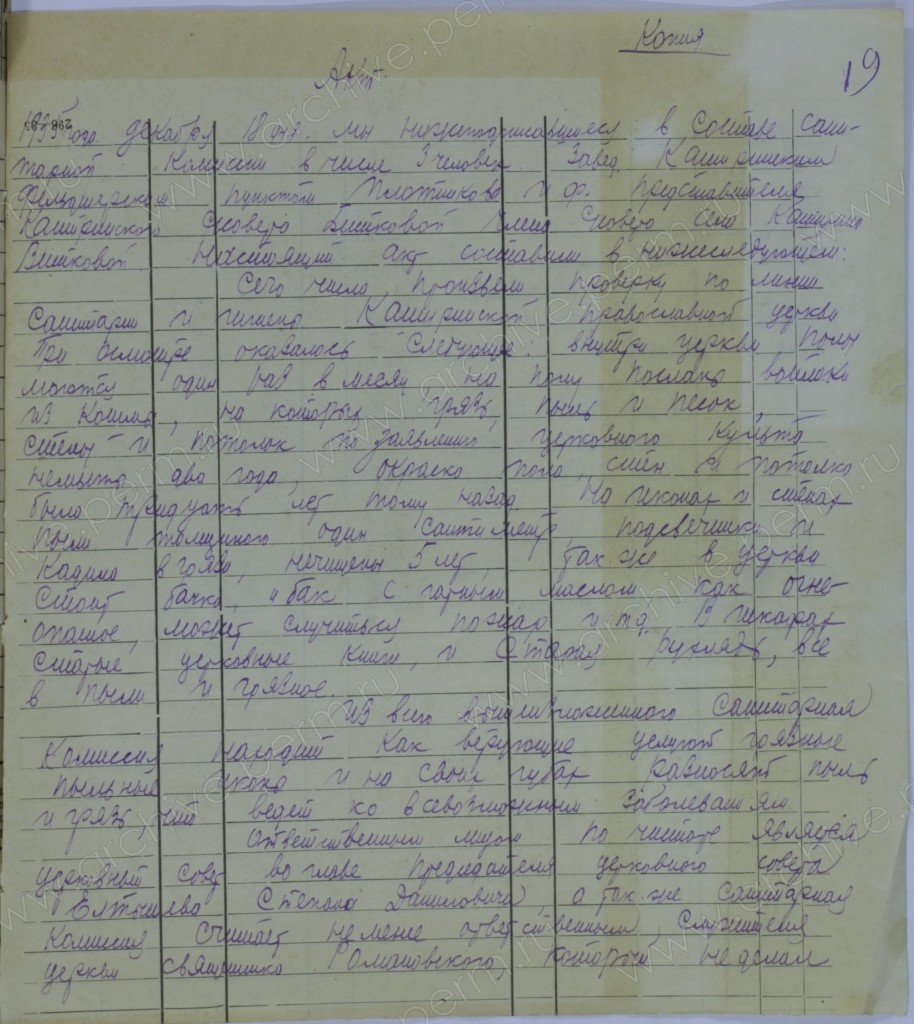 Копия
19
Акт.
1935 года декабря 18 дня. мы нижеподписавшиеся в составе сани-
тарной Комиссии в числе 3 человек. Завед. Каширинским
фельдшерским пунктом Плотникова и ф. представителя
Каширинского с/совета Витковой Члена с/совета села Каширино
Витковой. Настоящий акт составили в нижеследующем:
Сего числа произвели проверку по линии
санитарии и гигиены Каширинской православной церкви
При осмотре оказалось следующее: внутри церкви полы
моются один раз в месяц на полу посланы войлоки
из кошмы, на которых грязь, пыль и песок,
стены и потолок по заявлению церковного культа
немыты два года, окраска пола, стен и потолка
была тридцать лет тому назад. На иконах и стенах
пыли толщиною один сантиметр, подсвечники и
кадила в грязи, нечищены 5 лет, так-же в церкви
стоит бачки, и бак с гарным маслом как огне-
опасное, может случиться пожар и т.д. В шкафах
старые церковные книги, и старая рухлядь, все
в пыли и грязное.
Из всего вышеизложенного санитарная
Комиссия находит как верующие целуют грязные
пыльные иконы и на своих губах разносят пыль
и грязь, что ведет ко всевозможным заболеваниям.
Ответственным лицом по чистоте является
церковный совет во главе председателя церковного совета
Елтышева Степана Даниловича, а так-же санитарная
Комиссия считает не менее ответственным, служителя
церкви священника Романовского, который не делал
www.archive.perm.ru